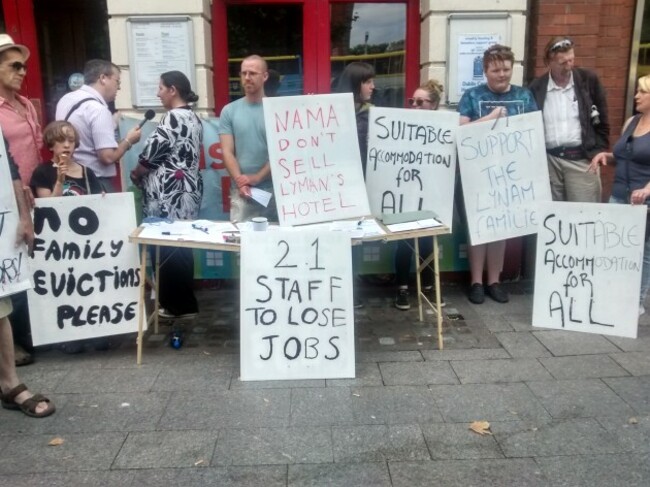 no
Family
EvictionS
PLEASE
NAMA
DON'T
SELL
LYMAN'S
HOTEL
2 1
STAFF
TO LOSE
JOBS
SUITABLE
ACCOMMODATION
for
ALL
SUPPORT
THE
LYNAM
FAMILIE
SUITABLE
ACCOMMODATION
for
ALL